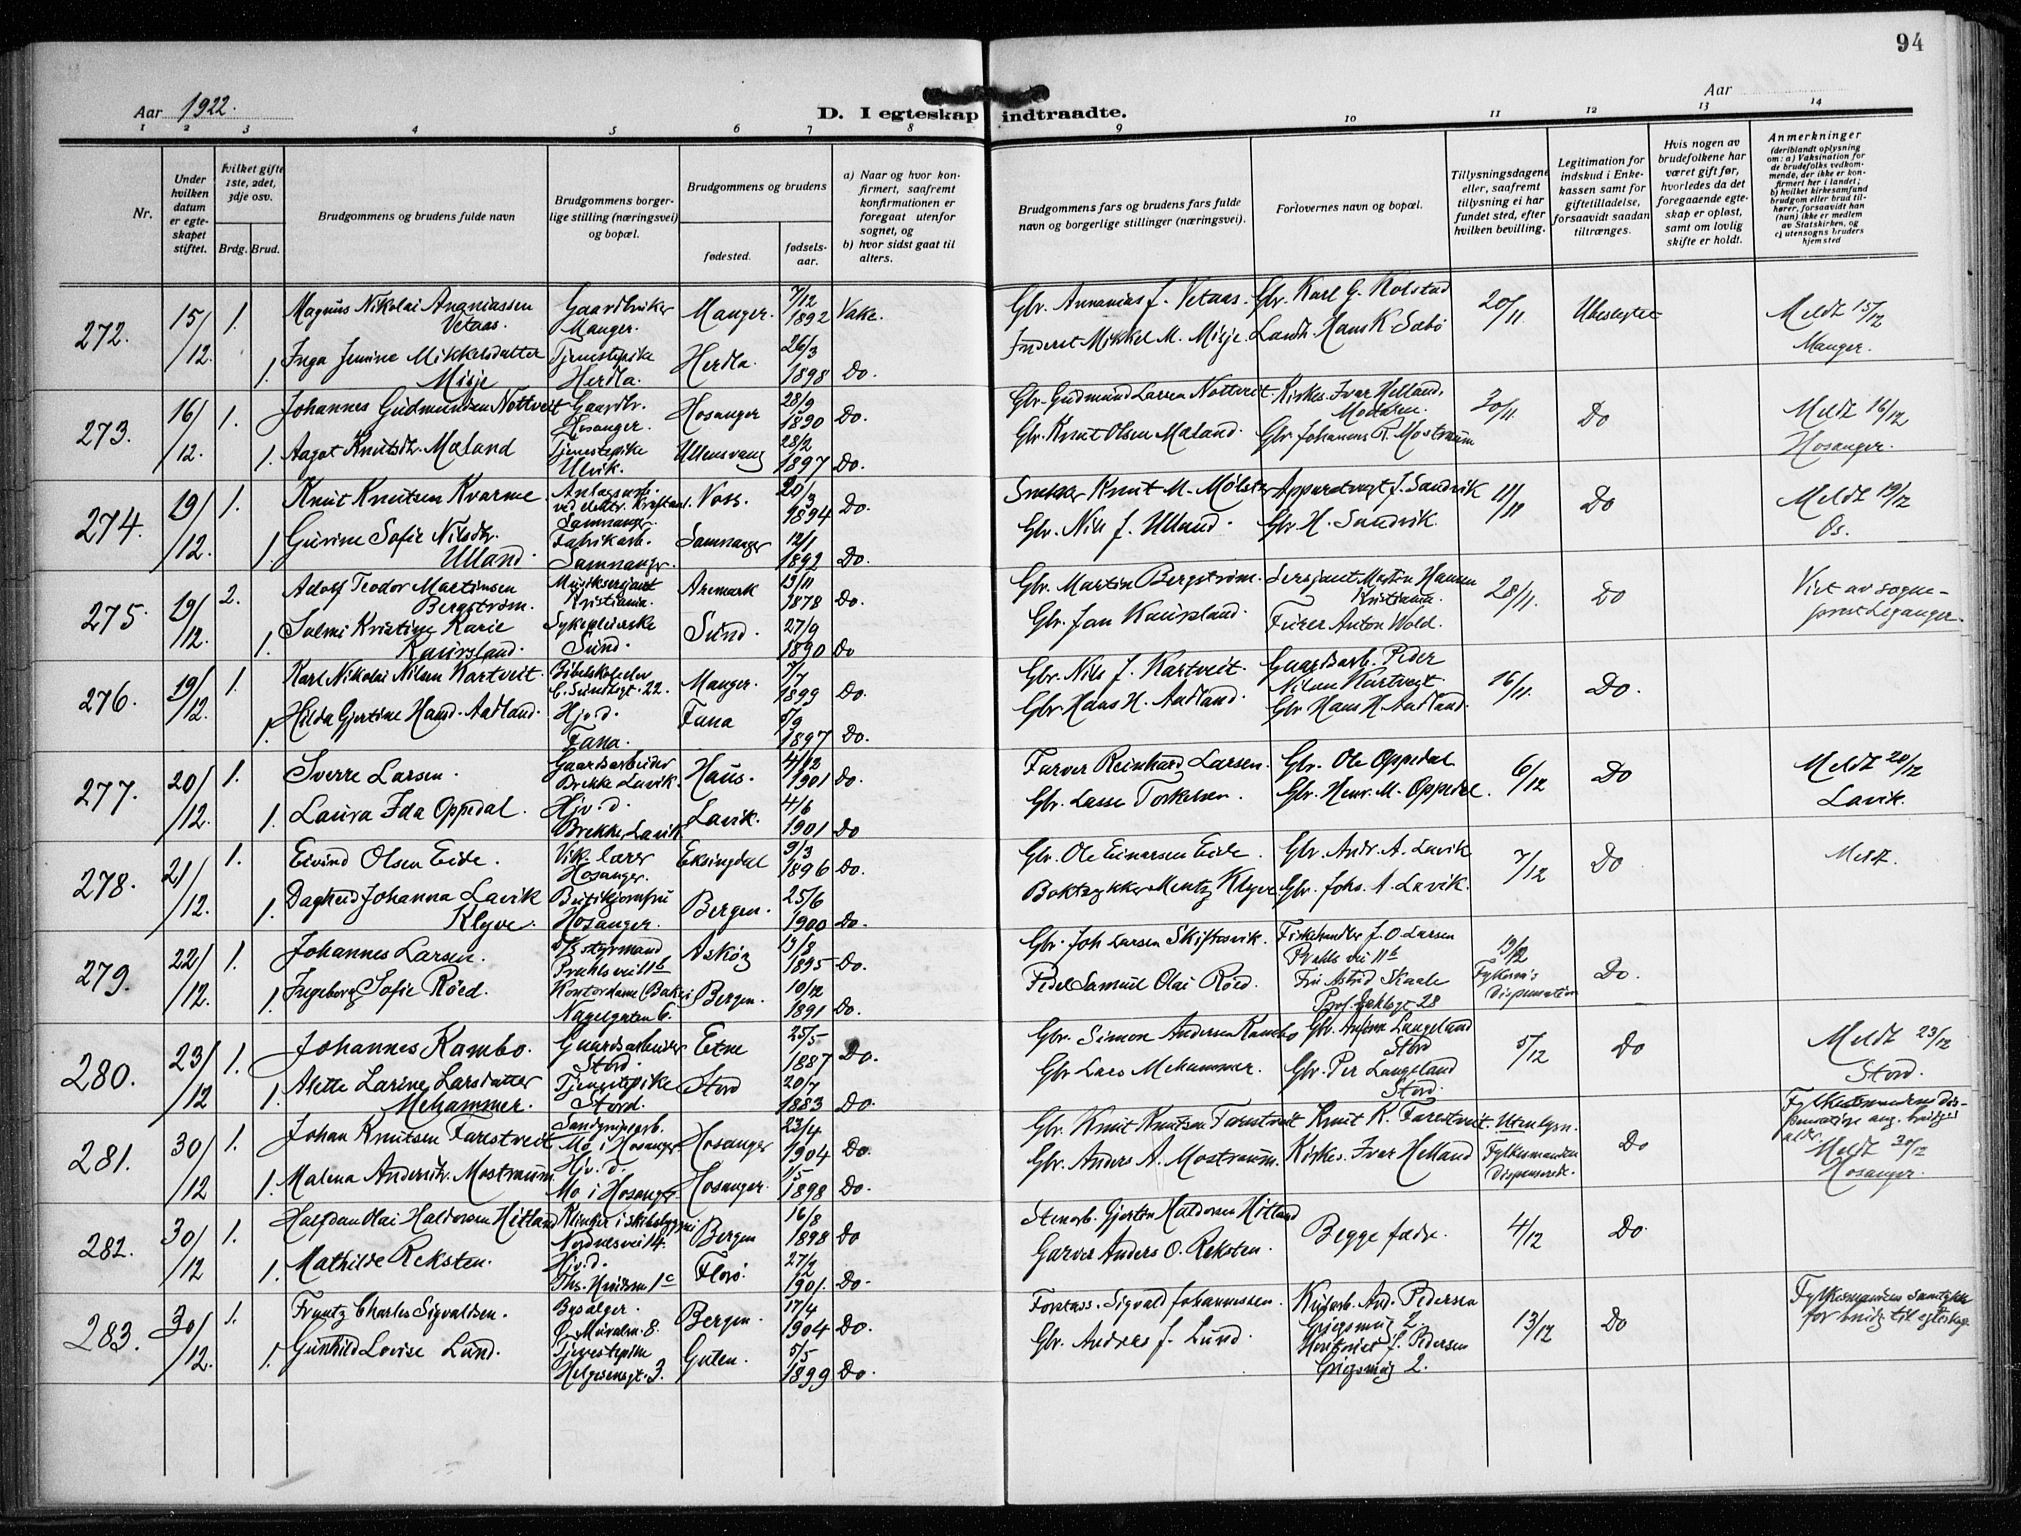 94
Aar 1922.
D. I egteskap indtraadte.
Aar
1 2 3 4 5 6 7 8 9 10 11 12 13 14
Nr.
Under hvilken datum er egteskapet stiftet.
Hvilket gifte 1ste, 2det, 3dje osv.
Brdg. Brud.
Brudgommens og brudens fulde navn
Brudgommens borgerlige stilling (næringsvei) og bopæl.
Brudgommens og brudens
fødested.
fødselsaar.
a) Naar og hvor konfirmert, saafremt konfirmationen er foregaat utenfor sognet, og
b) hvor sidst gaat til alters.
Brudgommens fars og brudens fars fulde navn og borgerlige stillinger (næringsvei).
Forlovernes navn og bopæl.
Tillysningsdagene eller, saafremt tillysning ei har fundet sted, efter hvilken bevilling.
Legitimation for indskud i Enkekassen samt for giftetilladelse, forsaavidt saadan tiltrænges.
Hvis nogen av brudefolkene har været gift før, hvorledes da det foregaaende egteskap er opløst, samt om lovlig skifte er holdt.
Anmerkninger (deriblandt oplysning om: a) Vaksination for de brudefolks vedkommende, der ikke er konfirmert her i landet; b) hvilket kirkesamfund brudgom eller brud tilhører, forsaavidt han (hun) ikke er medlem av Statskirken, og c) utensogns bruders hjemsted
272. 15/12. 1. Magnus Nikolai Ananiassen Vetaas. Gaardbruker Manger. Manger. 7/12 1892 Vake. Gbr. Annanias J. Vetaas. Gbr. Karl G. Kolstad 20/11. Ubeslegtet Meldt 15/12 Manger.
1. Inga Jensine Mikkelsdatter Misje Tjenestepike Herdla. Herdla. 26/3 1898 Do. Inderst Mikkel M. Misje. Landh. Hans K. Sæbø
273. 16/12. 1. Johannes Gudmundsen Nottveit Gaardbr. Hosanger. Hosanger 28/9 1890 Do. Gbr. Gudmund Larsen Nottveit. Kirkes. Ivar Helland, Modalen. 30/11. Do Meldt 16/12 Hosanger.
1. Aagot Knutsdtr. Maland Tjenestepike Ulvik. Ullensvang 28/2 1897 Do. Gbr. Knut Olsen Maland. Gbr. Johannes R. Mostraum
274. 19/12. 1. Knut Knutsen Kvarme Anlægsarb. ved elektr. Kraftanl. Samnanger. Voss. 20/3 1894 Do. Snekker Knut M. Mølster Gbr. H. Sandvik. Do Meldt 19/12 Os.
1. Gurine Sofie Nilsdtr. Ulland. Fabrikarb. Samnanger. Samnanger 12/1 1892 Do. Gbr. Nils J. Ulland.
275. 19/12. 2. Adolf Teodor Martinsen Bergstrøm. Musiksergeant Kristiania. Aremark 13/11 1878 Do. Gbr. Martin Bergstrøm. Sersjant Martin Hansen Kristiania. 28/11. Do Viet av sogneprest Leganger.
1. Salmi Kristine Karie Kausland. Sykepleierske Sund. Sund. 27/9 1890 Do Gbr. Jan Kausland. Furer Anton Wold.
276. 19/12. 1. Karl Nikolai Nilsen Kartveit. Bibelskoleelev Manger. 7/7 1899 Do. Gbr. Nils J. Kartveit. Gaardsarb. Peder Nilsen 16/11. Do.
1. Hilda Gjertine Hansd. Aadland. Hj. d. Fana. Fana 5/9 1897 Do. Gbr. Hans H. Aadland. Gbr. Hans H. Aadland
277. 20/12. 1. Sverre Larsen. Gaardsarbeider Brekke Lavik. Haus. 4/12 1901 Do. Farver Reinhard Larsen. Gbr. Ole Oppedal 6/12 Do Meldt 20/12 Lavik.
1. Laura Ida Oppedal. Hj. d. Brekke, Lavik. Lavik. 4/6 1901 Do Gbr. Lasse Torkelsen. Gbr. Henr. M. Oppedal.
278. 21/12. 1. Eivind Olsen Eide. Vik. lærer Hosanger. Eksingdal 9/3 1896 Do. Gbr. Ole Einarsen Eide. Gbr. Andr. A. Lavik 7/12 Do Meldt.
1. Dagheid Johanna Lavik Klyve. Butikjomfru Hosanger. Bergen. 25/6 1900 Do. Boktrykker Mentz Klyve Gbr. Johs. A. Lavik.
279. 22/12. 1. Johannes Larsen. Styrmand Prahls vei 11b Askøy 13/8 1895 Do. Gbr. Joh Larsen Skiftesvik. Fiskehandler J. O. Larsen Prahls vei 11b 19/12 Fylkesm's dispensation Do.
1. Ingeborg Sofie Røed. Kontordame Nagelgaten 6. Bergen. 10/12 1891 Do. Pedel Samuel Olai Røed. Fru Astrid Skaale 28
280. 23/12 1. Johannes Rambo. Gaardsarbeider Stord. Etne 25/5 1887 Do. Gbr. Simon Andersen Rambo Langeland Stord 5/12 Do Meldt 23/12 Stord.
1. Alette Larine Larsdatter Mehammer. Tjenestepike Stord. Stord 20/7 1883 Do. Gbr Lars Mehammer. Gbr. Per Langeland Stord.
281. 30/12 1. Johan Knutsen Farestveit Mo i Hosanger Hosanger 23/4 1904 Do. Gbr. Knut Knutsen Farestveit Knut K. Farestveit. Fylkesmanden dispenserte. Do Fylkesmandens dispensation ang. brudg. alder. Meldt 30/12 Hosanger.
1. Malena Andersdtr. Mostraum Hj. d. Mo i Hosanger Hosanger. 1/5 1898 Do. Gbr. Anders A. Mostraum. Kirkes. Ivar Helland
282. 30/12 1. Halfdan Olai Haldorsen Hitland Klinker i skibsbyggeri Nordnesvei 14. Bergen 16/8 1898 Do Stenarb. Gjertin Haldorsen Hitland Begge fædre. 4/12 Do.
1. Mathilde Reksten. Hj. d. Florø. 27/2 1901. Do. Garver Anders O. Reksten.
283. 30/12. 1. Frantz Charles Sigvaldsen. Bysælger. Ø. Muralm. 8. Bergen. 17/4 1904 Do. Sigvald Johannessen. And. Pedersen 2. 13/12 Do Fylkesmandens samtykke for brudg til egteskap
1. Gunhild Lovise Lund. Tjenestepike Helgesensgt. 3. Gulen. 5/5 1899 Do. Gbr. Anders J. Lund. J. Pedersen 2.